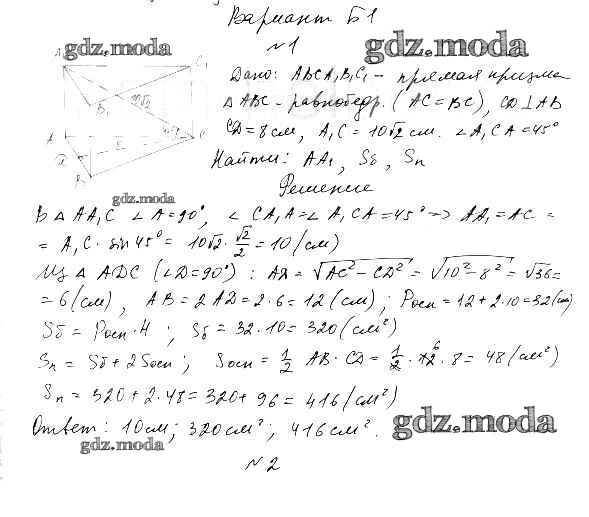 Вариант Б1
№1
gdz.moda gdz.moda
Дано: ABCA₁B₁C₁ – прямая призма
△ ABC – равнобедр. (AC = BC), CD ⊥ AB
CD = 8 см, A₁C = 10√2 см. ∠A₁CA = 45°
Найти: AA₁, Sб, Sп
A₁ C₁
B₁ 10√2
A 45° C
B
gdz.moda
Решение
В △ AA₁C ∠A = 90°, ∠CA₁A = ∠A₁CA = 45° → AA₁ = AC =
= A₁C · sin 45° = 10√2 · √2/2 = 10 (см)
Из △ ADC (∠D = 90°): AD = √(AC² − CD²) = √(10² − 8²) = √36 =
= 6 (см), AB = 2AD = 2·6 = 12 (см); Pосн = 12 + 2·10 = 32 (см)
Sб = Pосн · H; Sб = 32·10 = 320 (см²)
Sп = Sб + 2Sосн; Sосн = 1/2 AB · CD = 1/2 · 12 6 · 8 = 48 (см²)
Sп = 320 + 2·48 = 320 + 96 = 416 (см²)
Ответ: 10 см; 320 см²; 416 см².
gdz.moda gdz.moda
№2